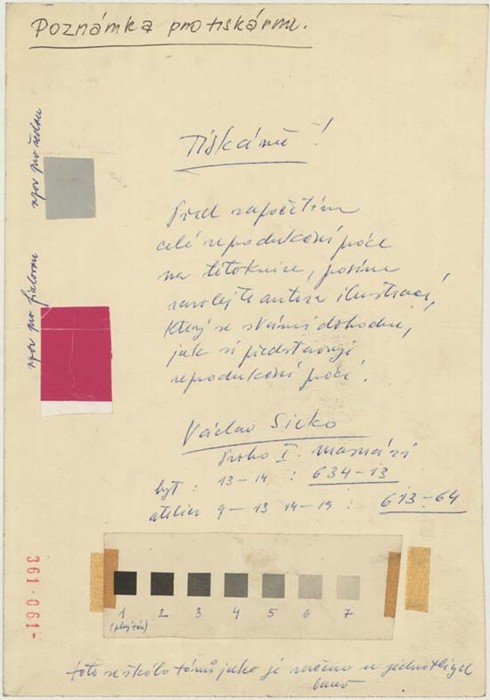 Poznámka pro tiskárnu.
vzor pro šedou
vzor pro fialovou
Tiskárně!
Před započetím
celé reprodukční práce
na této knize, prosím
zavolejte autora ilustrací,
který se s vámi dohodne,
jak si představuje
reprodukční práci.
Václav Sivko
Praha I.
byt: 13–14 : 634–13
atelier 9–13 14–19 : 613–64
361·061-
1 2 3 4 5 6 7
toto je škála tónů jako je v jednotlivých